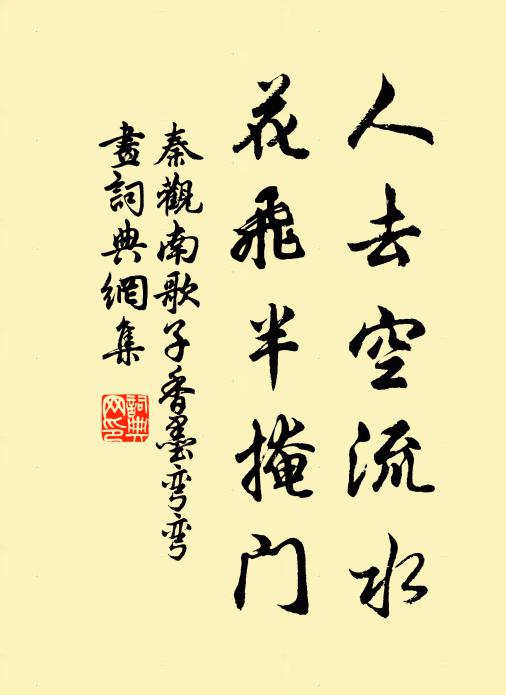 人去空流水
花飛半掩門
秦觀南歌子香墨彎彎
畫詞典網集
詞典网印